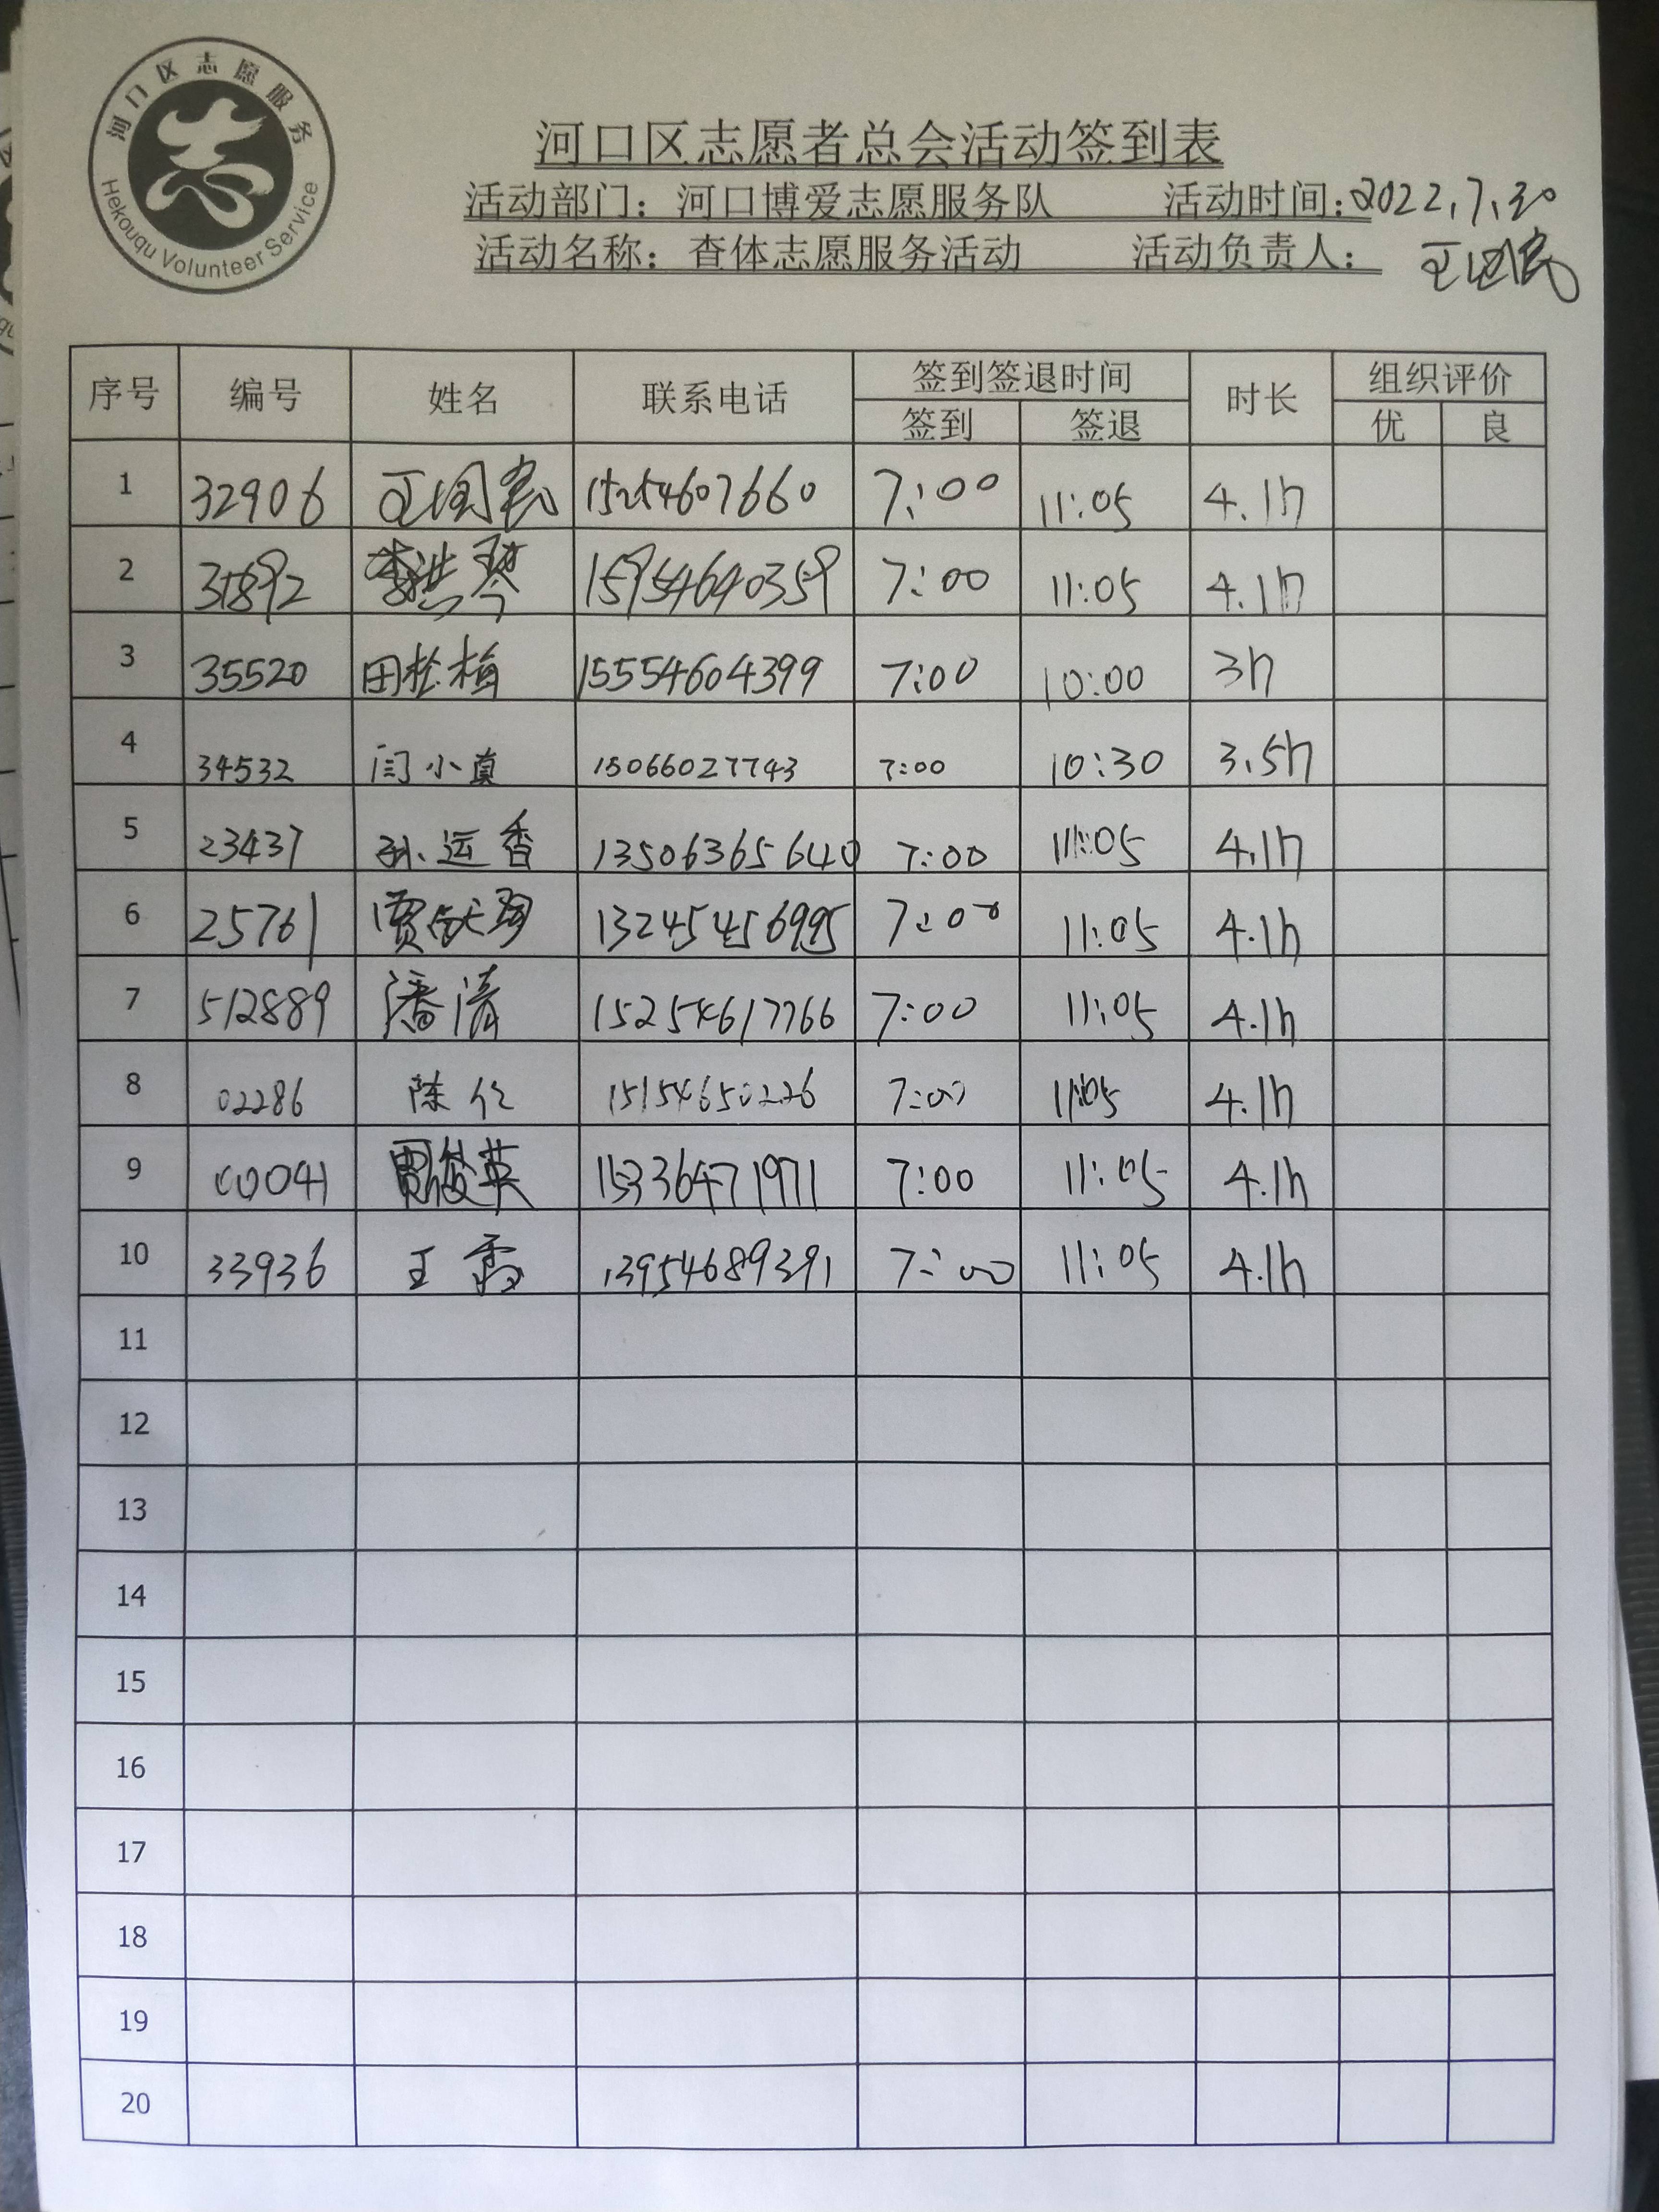 河口区志愿服务
Hekouqu Volunteer Service
河口区志愿者总会活动签到表
活动部门：河口博爱志愿服务队 活动时间：2022.7.30
活动名称：查体志愿服务活动 活动负责人：王国民
序号 编号 姓名 联系电话 签到签退时间 时长 组织评价
签到 签退 优 良
1 32906 王国民 15254607660 7:00 11:05 4.1h
2 31892 李洪琴 15954640359 7:00 11:05 4.1h
3 35520 田松梅 15554604399 7:00 10:00 3h
4 34532 闫小真 15066027743 7:00 10:30 3.5h
5 23437 孙运香 13506365640 7:00 11:05 4.1h
6 25761 7:00 11:05 4.1h
7 512889 潘清 15254617766 7:00 11:05 4.1h
8 02286 陈 15154650226 7:00 11:05 4.1h
9 00041 贾俊英 15336471971 7:00 11:05 4.1h
10 33936 王霞 13954689391 7:00 11:05 4.1h
11
12
13
14
15
16
17
18
19
20